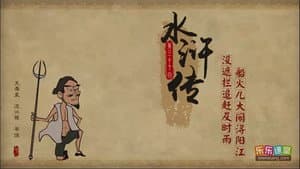 水浒传
没遮拦追赶及时雨
船火儿大闹浔阳江
乐乐课堂